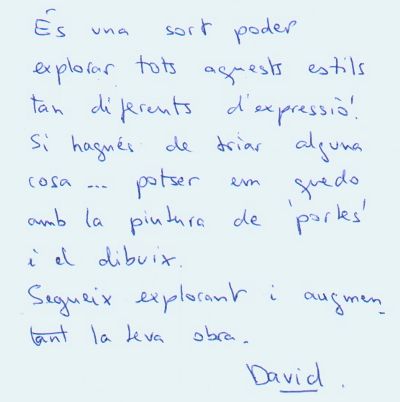 És una sort poder
explorar tots aquests estils
tan diferents d'expressió!
Si hagués de triar alguna
cosa ... potser em quedo
amb la pintura de 'portes'
i el dibuix.
Segueix explorant i augmen_
tant la teva obra.
David.